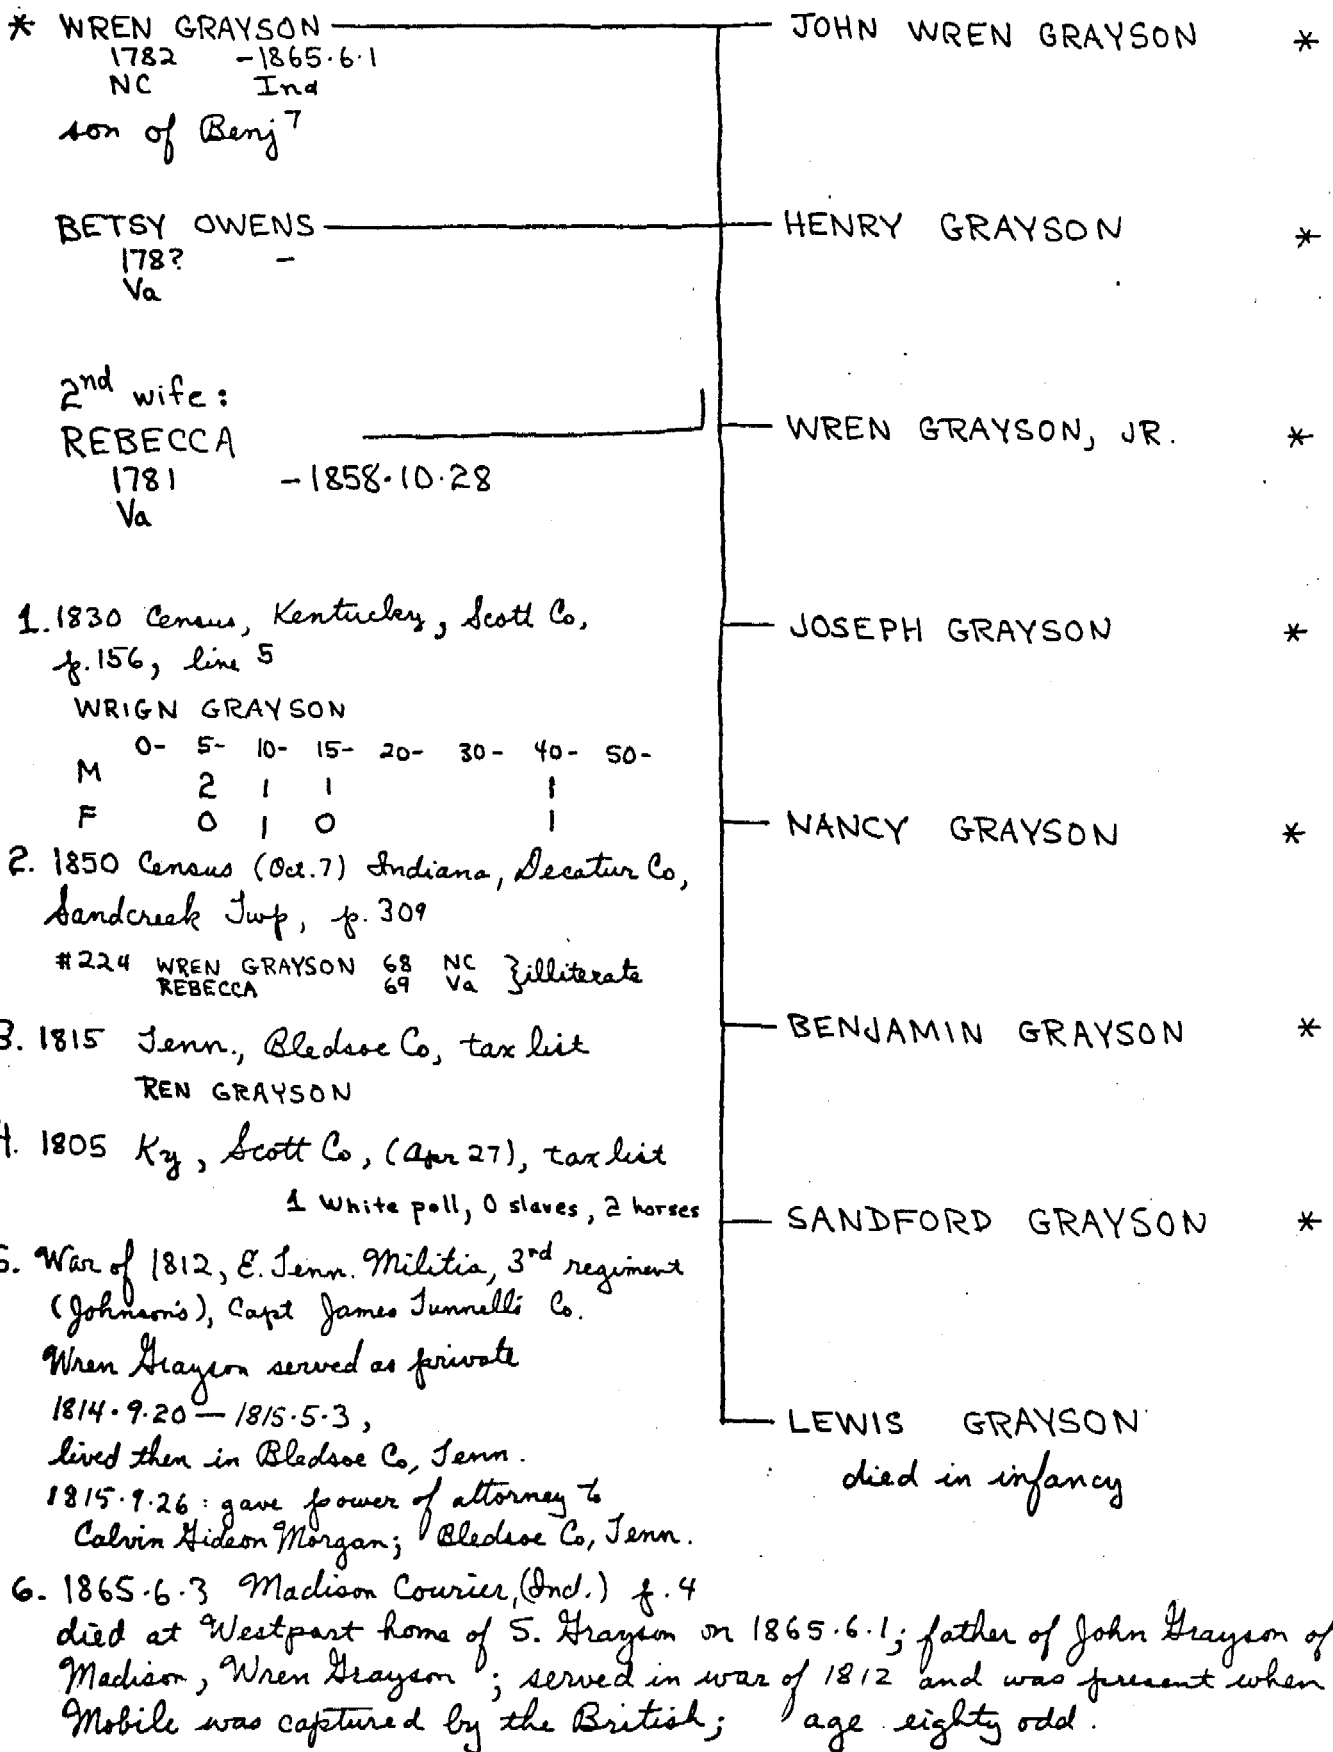 * WREN GRAYSON
1782 -1865.6.1
NC Ind
son of Benj 7
BETSY OWENS
178? -
Va
2nd wife:
REBECCA
1781 -1858.10.28
Va
1. 1830 Census, Kentucky, Scott Co,
p.156, line 5
WRIGN GRAYSON
0- 5- 10- 15- 20- 30- 40- 50-
M 2 1 1 1
F 0 1 0 1
2. 1850 Census (Oct.7) Indiana, Decatur Co,
Sandcreek Twp, p. 309
#224 WREN GRAYSON 68 NC }illiterate
REBECCA 69 Va
3. 1815 Tenn., Bledsoe Co, tax list
REN GRAYSON
4. 1805 Ky, Scott Co, (Apr 27), tax list
1 White poll, 0 slaves, 2 horses
5. War of 1812, E. Tenn. Militia, 3rd regiment
(Johnson's), Capt James Tunnell's Co.
Wren Grayson served as private
1814.9.20 — 1815.5.3,
lived then in Bledsoe Co, Tenn.
1815.9.26: gave power of attorney to
Calvin Gideon Morgan; Bledsoe Co, Tenn.
6. 1865.6.3 Madison Courier, (Ind.) p. 4
died at Westport home of S. Grayson on 1865.6.1; father of John Grayson of
Madison, Wren Grayson; served in war of 1812 and was present when
Mobile was captured by the British; age eighty odd.
JOHN WREN GRAYSON *
HENRY GRAYSON *
WREN GRAYSON, JR. *
JOSEPH GRAYSON *
NANCY GRAYSON *
BENJAMIN GRAYSON *
SANDFORD GRAYSON *
LEWIS GRAYSON
died in infancy